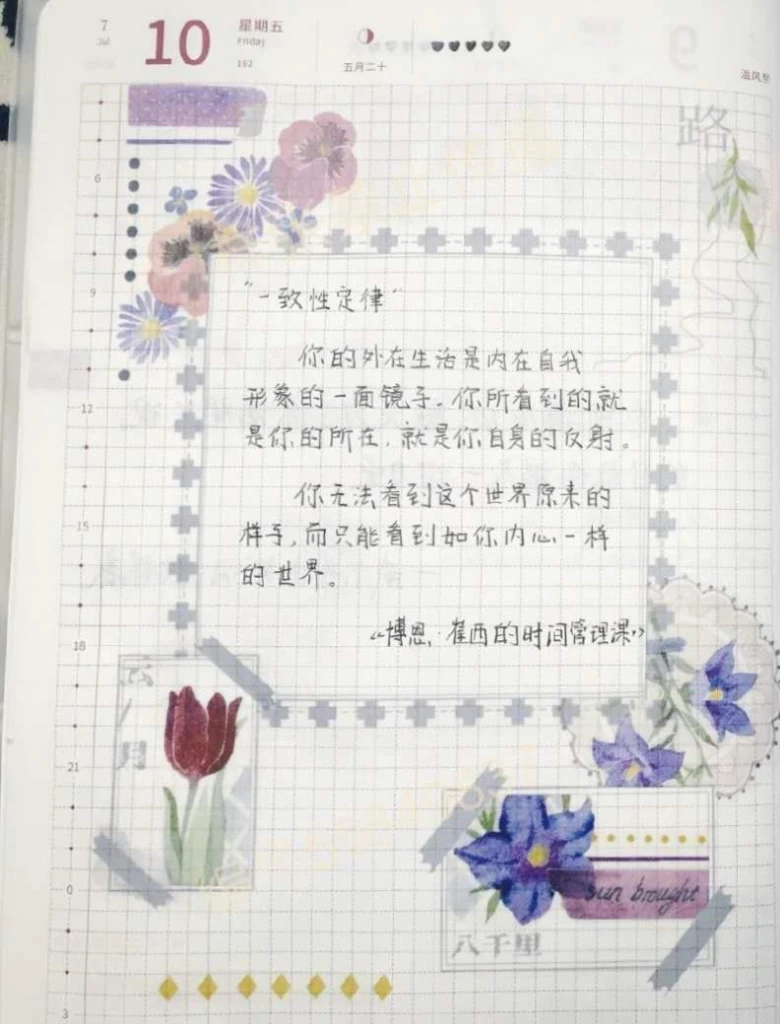 7
Jul
10
星期五
Friday
192
五月二十
温风至
路
6
9
12
15
18
21
0
3
“一致性定律”
你的外在生活是内在自我
形象的一面镜子。你所看到的就
是你的所在，就是你自身的反射。
你无法看到这个世界原来的
样子，而只能看到如你内心一样
的世界。
《博恩·崔西的时间管理课》
云
月
sun brought
八千里